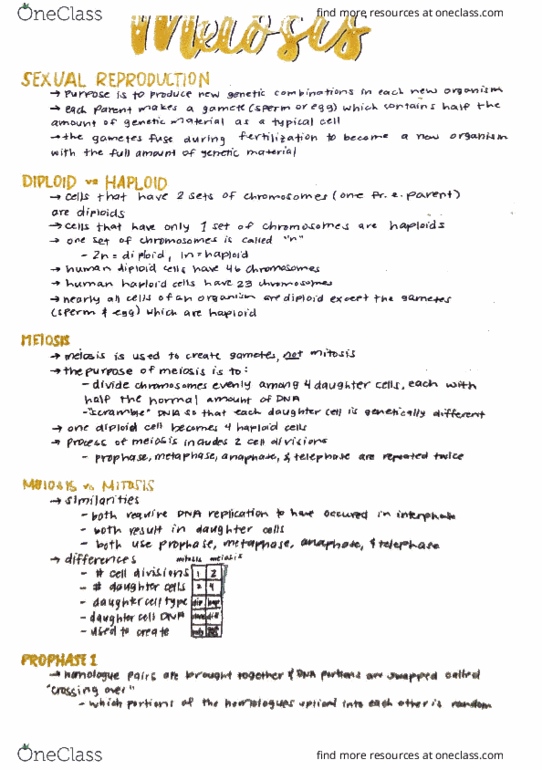 OneClass
find more resources at oneclass.com
Meiosis
SEXUAL REPRODUCTION
→ Purpose is to produce new genetic combinations in each new organism
→ each parent makes a gamete (sperm or egg) which contains half the
amount of genetic material as a typical cell
→ the gametes fuse during fertilization to become a new organism
with the full amount of genetic material
DIPLOID vs HAPLOID
→ cells that have 2 sets of chromosomes (one fr. e. parent)
are diploids
→ cells that have only 1 set of chromosomes are haploids
→ one set of chromosomes is called "n"
- 2n = diploid, 1n = haploid
→ human diploid cells have 46 chromosomes
→ human haploid cells have 23 chromosomes
→ nearly all cells of an organism are diploid except the gametes
(sperm & egg) which are haploid
MEIOSIS
→ meiosis is used to create gametes, not mitosis
→ the purpose of meiosis is to:
- divide chromosomes evenly among 4 daughter cells, each with
half the normal amount of DNA
- "scramble" DNA so that each daughter cell is genetically different
→ one diploid cell becomes 4 haploid cells
→ process of meiosis includes 2 cell divisions
- prophase, metaphase, anaphase, & telephase are repeated twice
MEIOSIS vs MITOSIS
→ similarities
- both require DNA replication to have occured in interphase
- both result in daughter cells
- both use prophase, metaphase, anaphase, & telephase
→ differences mitosis meiosis
- # cell divisions 1 2
- # daughter cells 2 4
- daughter cell type dip hap
- daughter cell DNA
- used to create
PROPHASE 1
→ homologue pairs are brought together & DNA portions are swapped called
"crossing over"
- which portions of the homologues spliced into each other is random
OneClass
find more resources at oneclass.com